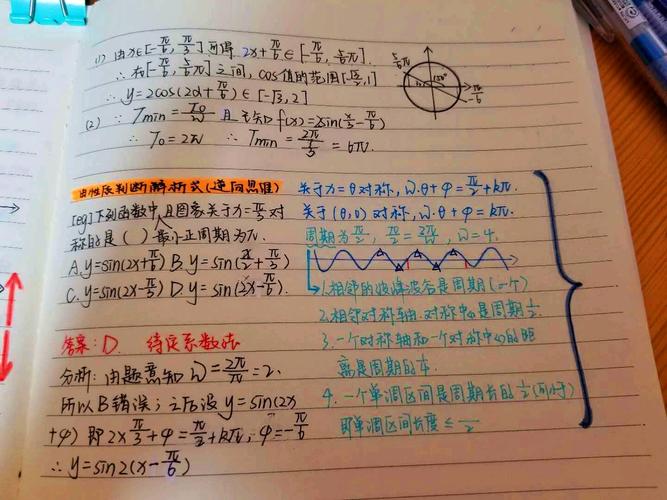 (1) 由x∈[-π/6, π/3]可得 2x+π/6∈[-π/6, 5/6π].
∴在[-π/6, 5/6π]之间, cos值的范围[-√3/2, 1]
∴y=2cos(2x+π/6)∈[-√3, 2]
5/6π
-π/6
(2) ∵Tmin=T0/w 且已知 f(x)=2sin(x/3-π/6)
∴T0=2π ∴Tmin=2π/(1/3)=6π.
由性质判断解析式(逆向思维)
[eg]下列函数中,且图象关于x=π/3对
称的是( ) 最小正周期为π.
A.y=sin(2x+π/6) B.y=sin(x/2+π/3)
C.y=sin(2x-π/3) D.y=sin(2x-π/6).
答案:D. 待定系数法
分析:由题意知 w=2π/π=2.
所以B错误;之后设 y=sin(2x
+φ) 即 2×π/3+φ=π/2+kπ, φ=-π/6
∴y=sin2(x-π/6)
关于x=θ对称, w·θ+φ=π/2+kπ.
关于(θ,0)对称, w·θ+φ=kπ.
周期为π/2, π/2=2π/w, w=4.
1.相邻的波峰波谷是周期(一个)
2.相邻对称轴.对称中心是周期1/2.
3.一个对称轴和一个对称中心的距
离是周期的1/4.
4.一个单调区间是周期长的1/2(可小于)
即单调区间长度≤